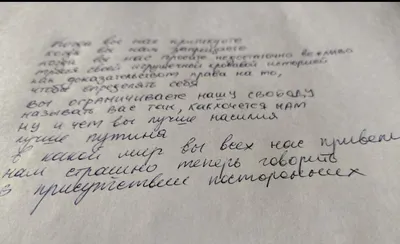 когда вы нас критикуете
когда вы нам запрещаете
когда вы нас просите недостаточно вежливо
трясся своей игрушечной кровавой историей
как доказательством права на то,
чтобы определять себя
вы ограничиваете нашу свободу
называть вас так, как хочется нам
ну и чем вы лучше насилия
лучше путина
в какой мир вы всех нас привели
нам страшно теперь говорить
в присутствии посторонних